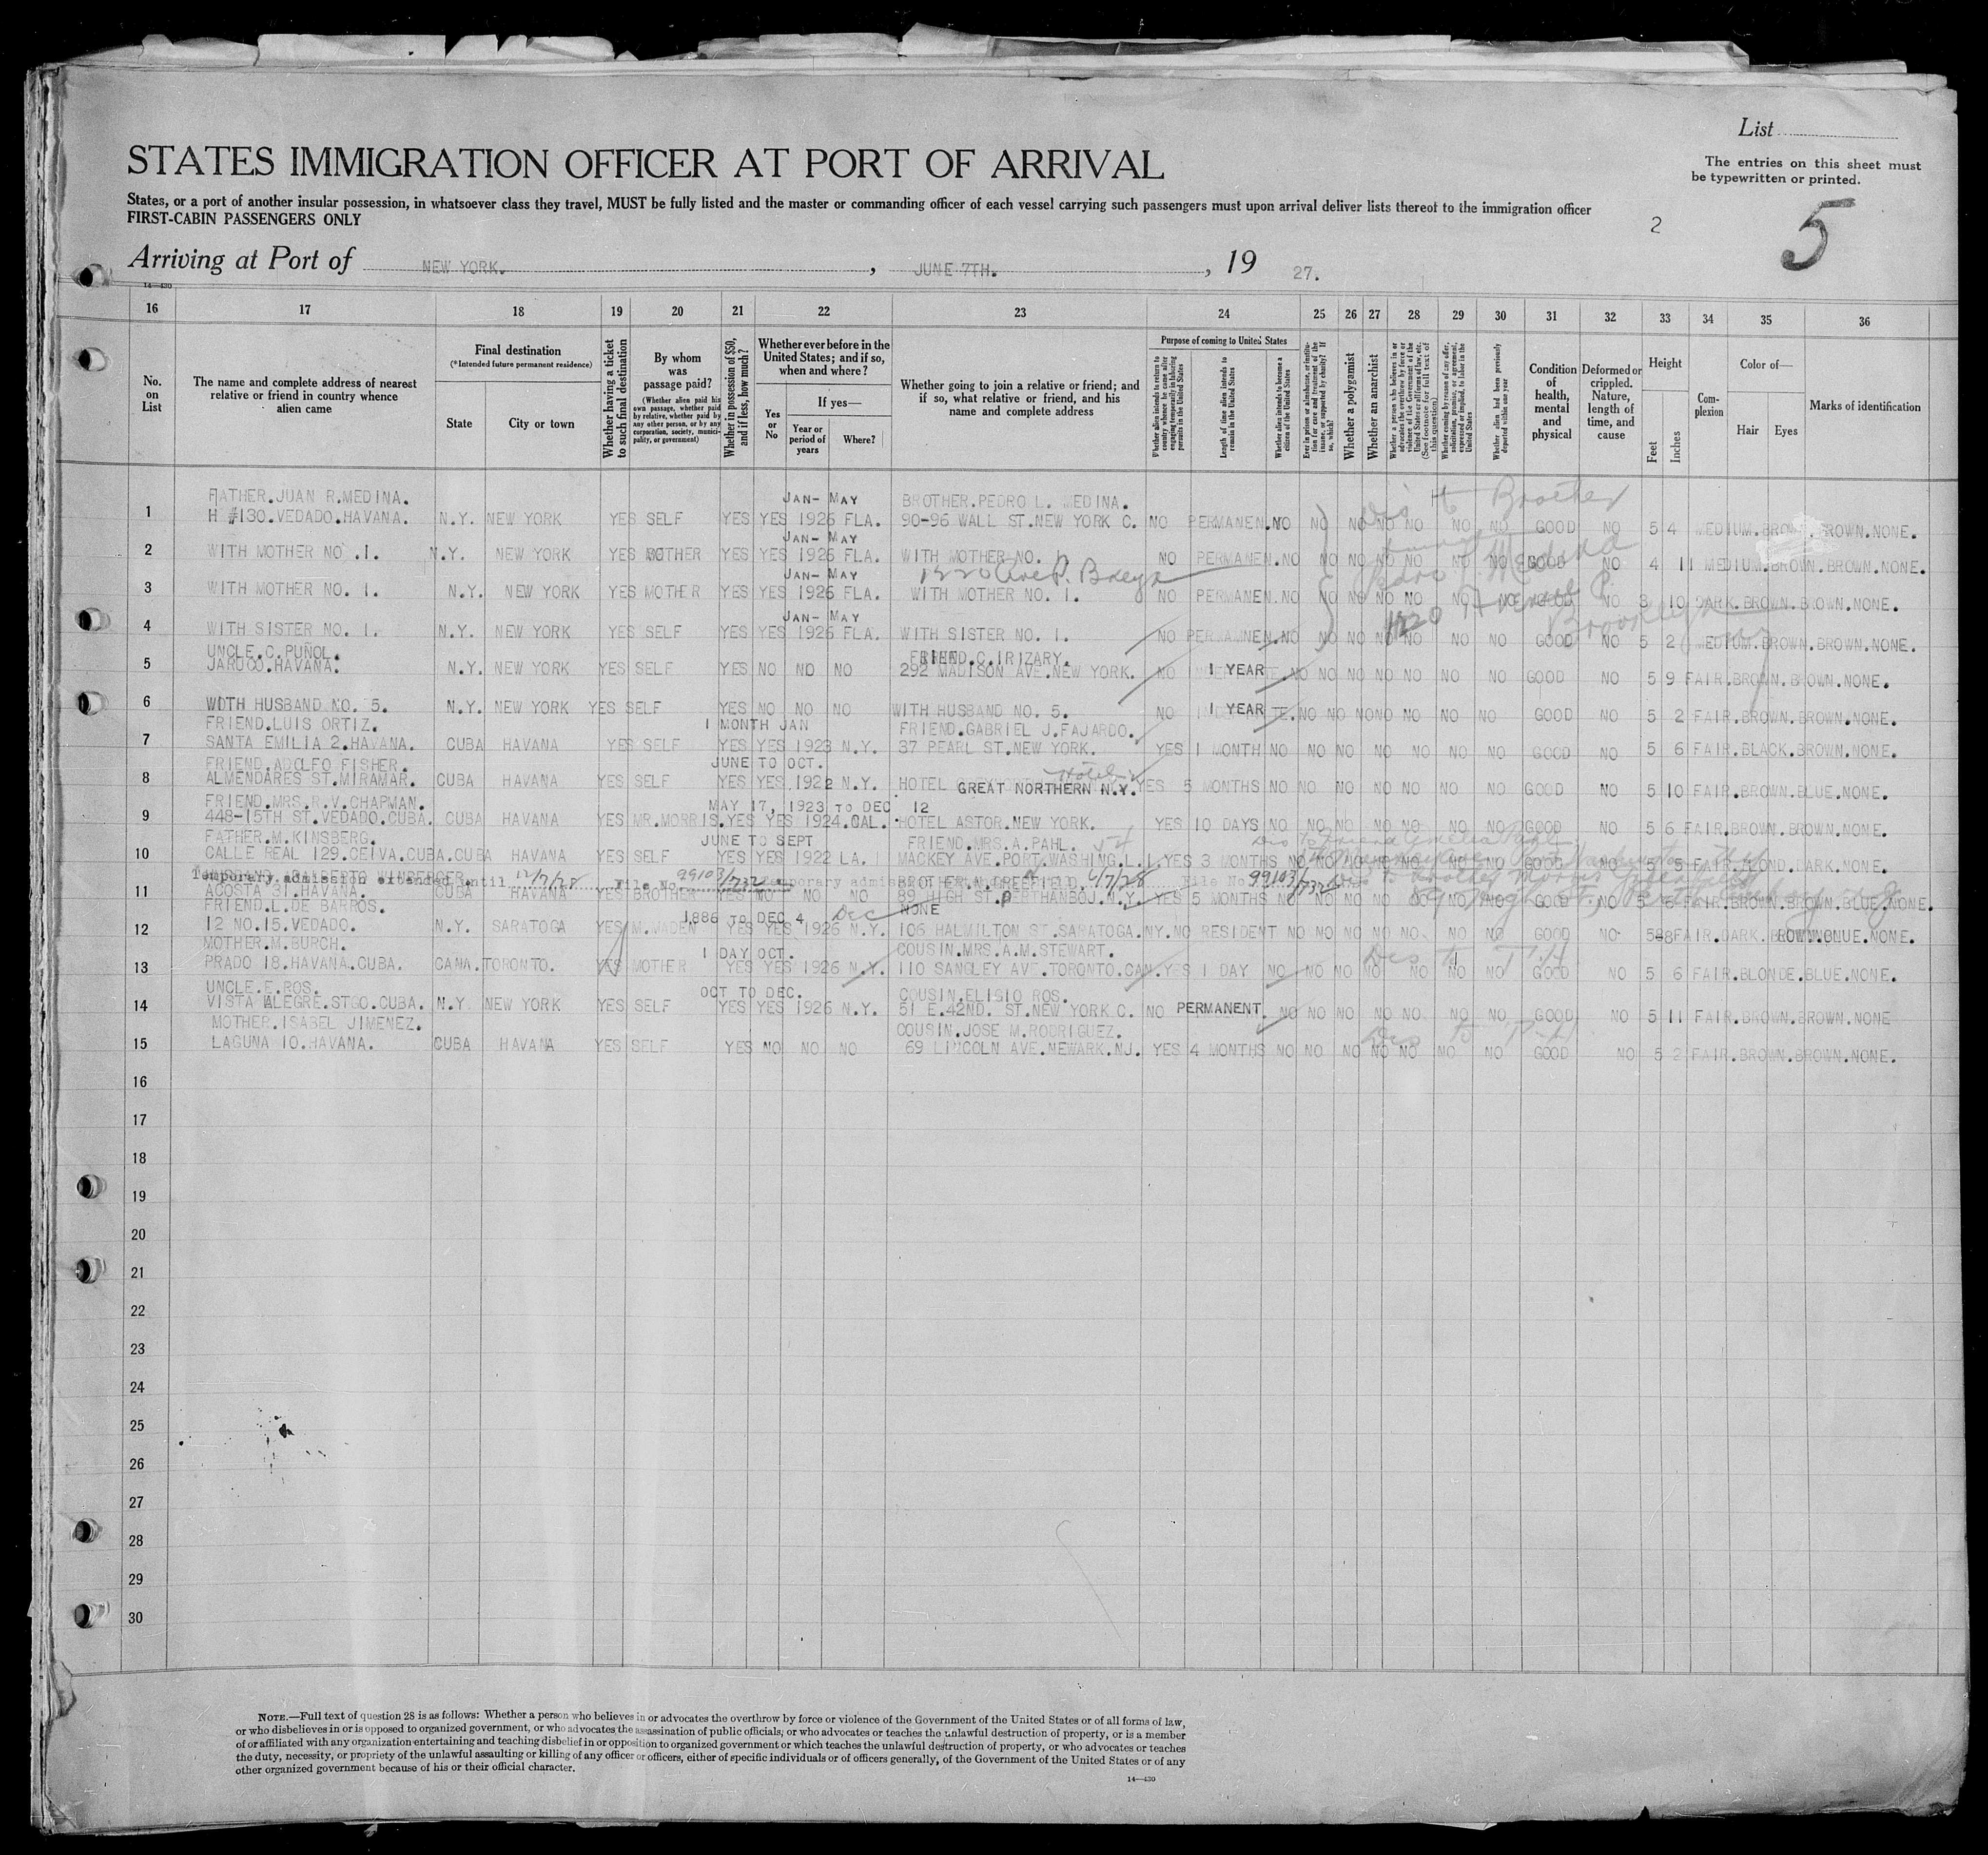 List
The entries on this sheet must
be typewritten or printed.
STATES IMMIGRATION OFFICER AT PORT OF ARRIVAL
States, or a port of another insular possession, in whatsoever class they travel, MUST be fully listed and the master or commanding officer of each vessel carrying such passengers must upon arrival deliver lists thereof to the immigration officer
FIRST-CABIN PASSENGERS ONLY
2
5
Arriving at Port of NEW YORK. , JUNE 7TH. , 19 27.
14—430
16 17 18 19 20 21 22 23 24 25 26 27 28 29 30 31 32 33 34 35 36
No. on List
The name and complete address of nearest relative or friend in country whence alien came
Final destination
(*Intended future permanent residence)
State
City or town
Whether having a ticket to such final destination
By whom was passage paid?
(Whether alien paid his own passage, whether paid by relative, whether paid by any other person, or by any corporation, society, municipality, or government)
Whether in possession of $50, and if less, how much?
Whether ever before in the United States; and if so, when and where?
Yes or No
If yes—
Year or period of years
Where?
Whether going to join a relative or friend; and if so, what relative or friend, and his name and complete address
Purpose of coming to United States
Whether alien intends to return to country whence he came after engaging temporarily in laboring pursuits in the United States
Length of time alien intends to remain in the United States
Whether alien intends to become a citizen of the United States
Whether a polygamist
Whether an anarchist
Whether alien had been previously deported within one year
Condition of health, mental and physical
Deformed or crippled. Nature, length of time, and cause
Height
Feet
Inches
Complexion
Color of—
Hair
Eyes
Marks of identification
FATHER.JUAN R.MEDINA. JAN- MAY BROTHER.PEDRO L. MEDINA.
1 H #130.VEDADO.HAVANA. N.Y. NEW YORK YES SELF YES YES 1926 FLA. 90-96 WALL ST.NEW YORK C. NO PERMANEN.NO NO NO NO NO NO NO GOOD NO 5 4 MEDIUM.BROWN.BROWN.NONE.
Dis to Brother
JAN- MAY
2 WITH MOTHER NO .1. N.Y. NEW YORK YES MOTHER YES YES 1926 FLA. WITH MOTHER NO. 1. NO PERMANEN.NO NO NO NO NO NO NO GOOD NO 4 11 MEDIUM.BROWN.BROWN.NONE.
JAN- MAY
1220 Ave P.
Pedro L. Medina
3 WITH MOTHER NO. 1. N.Y. NEW YORK YES MOTHER YES YES 1926 FLA. WITH MOTHER NO. 1. NO PERMANEN.NO NO NO NO NO NO NO GOOD NO 3 10 DARK.BROWN.BROWN.NONE.
1220 Avenue P.
Brooklyn
JAN- MAY
4 WITH SISTER NO. 1. N.Y. NEW YORK YES SELF YES YES 1926 FLA. WITH SISTER NO. 1. NO PERMAMNEN.NO NO NO NO NO NO NO GOOD NO 5 2 MEDIUM.BROWN.BROWN.NONE.
UNCLE.C.PUÑOL. FRIEND.C.IRIZARY.
5 JARUCO.HAVANA. N.Y. NEW YORK YES SELF YES NO NO NO 292 MADISON AVE.NEW YORK. NO 1 YEAR NO NO NO NO NO NO NO GOOD NO 5 9 FAIR.BROWN.BROWN.NONE.
6 WITH HUSBAND NO. 5. N.Y. NEW YORK YES SELF YES NO NO NO WITH HUSBAND NO. 5. NO 1 YEAR NO NO NO NO NO NO NO GOOD NO 5 2 FAIR.BROWN.BROWN.NONE.
FRIEND.LUIS ORTIZ. 1 MONTH JAN FRIEND.GABRIEL J.FAJARDO.
7 SANTA EMILIA 2.HAVANA. CUBA HAVANA YES SELF YES YES 1923 N.Y. 37 PEARL ST.NEW YORK. YES 1 MONTH NO NO NO NO NO NO NO GOOD NO 5 6 FAIR.BLACK.BROWN.NONE.
FRIEND.ADOLFO FISHER. JUNE TO OCT. Hotel
8 ALMENDARES ST.MIRAMAR. CUBA HAVANA YES SELF YES YES 1922 N.Y. HOTEL GREAT NORTHERN N.Y. YES 5 MONTHS NO NO NO NO NO NO NO GOOD NO 5 10 FAIR.BROWN.BLUE.NONE.
FRIEND.MRS.R.V.CHAPMAN. MAY 17, 1923 TO DEC. 12
9 448-15TH ST.VEDADO.CUBA. CUBA HAVANA YES MR.MORRIS.YES YES 1924.CAL. HOTEL ASTOR.NEW YORK. YES 10 DAYS NO NO NO NO NO NO NO GOOD NO 5 6 FAIR.BROWN.BROWN.NONE.
FATHER.M.KINSBERG. JUNE TO SEPT FRIEND.MRS.A.PAHL.
10 CALLE REAL 129.CEIVA.CUBA.CUBA HAVANA YES SELF YES YES 1922 LA. MACKEY AVE.PORT.WASHING.L.I.YES 3 MONTHS NO NO NO NO NO NO NO GOOD NO 5 5 FAIR.BLOND.DARK.NONE.
Temporary admission extended until 12/7/28 File No. 99103/732 6/7/28 File No. 99103/732
11 ACOSTA 31.HAVANA. CUBA HAVANA YES BROTHER YES NO NO NO 89 HIGH ST.PERTHANBOJ.N.Y. YES 5 MONTHS NO NO NO NO NO NO NO GOOD NO 5 6 FAIR.BROWN.BLUE.NONE.
FRIEND.L.DE BARROS. 1886 TO DEC 4 Dec NONE
12 12 NO.15.VEDADO. N.Y. SARATOGA YES M.WADEN YES YES 1926 N.Y. 106 HALMILTON ST.SARATOGA.NY.NO RESIDENT NO NO NO NO NO NO NO GOOD NO 5 8 FAIR.DARK.BROWN.BLUE.NONE.
MOTHER.M.BURCH. 1 DAY OCT. COUSIN.MRS.A.M.STEWART.
13 PRADO 18.HAVANA.CUBA. CANA.TORONTO. YES MOTHER YES YES 1926 N.Y. 110 SANGLEY AVE.TORONTO.CAN.YES 1 DAY NO NO NO NO NO NO NO GOOD NO 5 6 FAIR.BLONDE.BLUE.NONE.
UNCLE.E.ROS. OCT TO DEC. COUSIN.ELISIO ROS.
14 VISTA ALEGRE.STGO.CUBA. N.Y. NEW YORK YES SELF YES YES 1926 N.Y. 51 E.42ND. ST.NEW YORK C. NO PERMANENT. NO NO NO NO NO NO NO GOOD NO 5 11 FAIR.BROWN.BROWN NONE
MOTHER.ISABEL JIMENEZ. COUSIN.JOSE M.RODRIGUEZ.
15 LAGUNA 10.HAVANA. CUBA HAVANA YES SELF YES NO NO NO 69 LINCOLN AVE.NEWARK.NJ. YES 4 MONTHS NO NO NO NO NO NO NO GOOD NO 5 2 FAIR.BROWN.BROWN.NONE.
16
17
18
19
20
21
22
23
24
25
26
27
28
29
30
NOTE.—Full text of question 28 is as follows: Whether a person who believes in or advocates the overthrow by force or violence of the Government of the United States or of all forms of law,
or who disbelieves in or is opposed to organized government, or who advocates the assassination of public officials, or who advocates or teaches the unlawful destruction of property, or is a member
of or affiliated with any organization entertaining and teaching disbelief in or opposition to organized government or which teaches the unlawful destruction of property, or who advocates or teaches
the duty, necessity, or propriety of the unlawful assaulting or killing of any officer or officers, either of specific individuals or of officers generally, of the Government of the United States or of any
other organized government because of his or their official character.
14—430